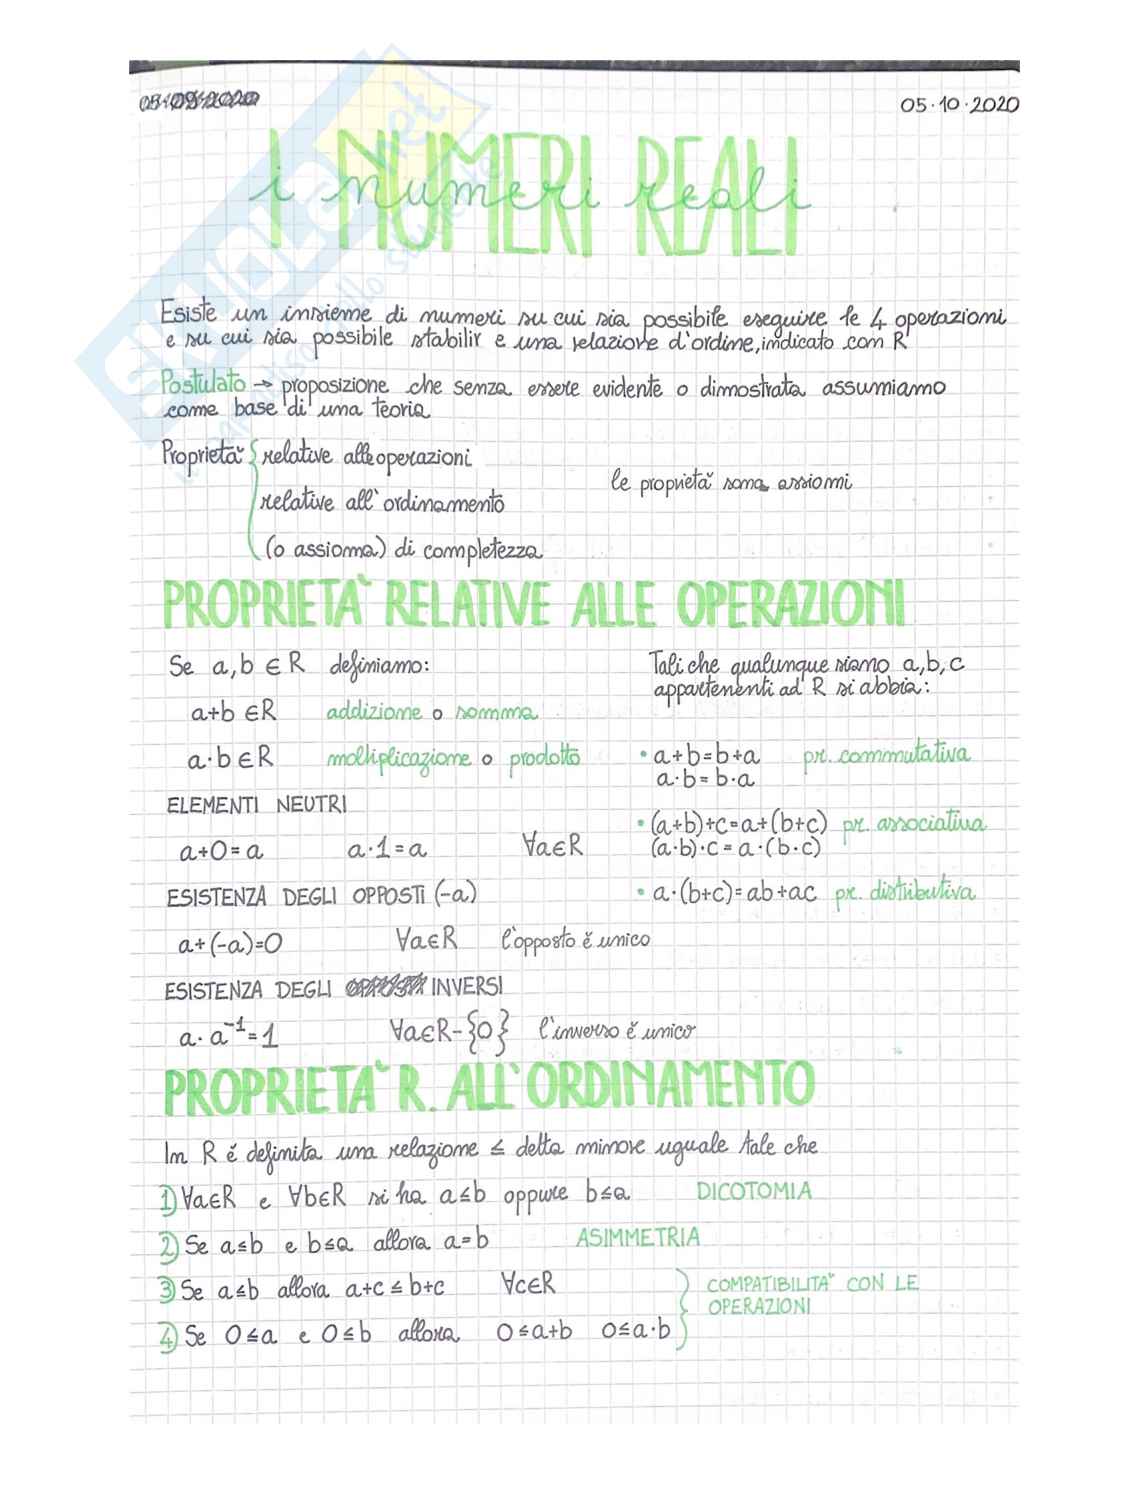 05·10·2020
I NUMERI REALI
i numeri reali
Esiste un insieme di numeri su cui sia possibile eseguire le 4 operazioni
e su cui sia possibile stabilir e una relazione d'ordine, indicato con R
Postulato → proposizione che senza essere evidente o dimostrata assumiamo
come base di una teoria
Proprietà { relative alle operazioni
relative all'ordinamento
(o assioma) di completezza
le proprietà sono assiomi
PROPRIETÀ RELATIVE ALLE OPERAZIONI
Se a,b ∈ R definiamo:
a+b ∈R addizione o somma
a·b ∈R moltiplicazione o prodotto
ELEMENTI NEUTRI
a+0=a a·1=a ∀a∈R
ESISTENZA DEGLI OPPOSTI (-a)
a+(-a)=0 ∀a∈R l'opposto è unico
ESISTENZA DEGLI INVERSI
a·a⁻¹=1 ∀a∈R-{0} l'inverso è unico
Tali che qualunque siano a,b,c
appartenenti ad R si abbia:
• a+b=b+a pr. commutativa
a·b=b·a
• (a+b)+c=a+(b+c) pr. associativa
(a·b)·c=a·(b·c)
• a·(b+c)=ab+ac pr. distributiva
PROPRIETÀ R. ALL'ORDINAMENTO
In R è definita una relazione ≤ detta minore uguale tale che
1) ∀a∈R e ∀b∈R si ha a≤b oppure b≤a DICOTOMIA
2) Se a≤b e b≤a allora a=b ASIMMETRIA
3) Se a≤b allora a+c≤b+c ∀c∈R
4) Se 0≤a e 0≤b allora 0≤a+b 0≤a·b
} COMPATIBILITÀ CON LE
OPERAZIONI
SKUOLA.net